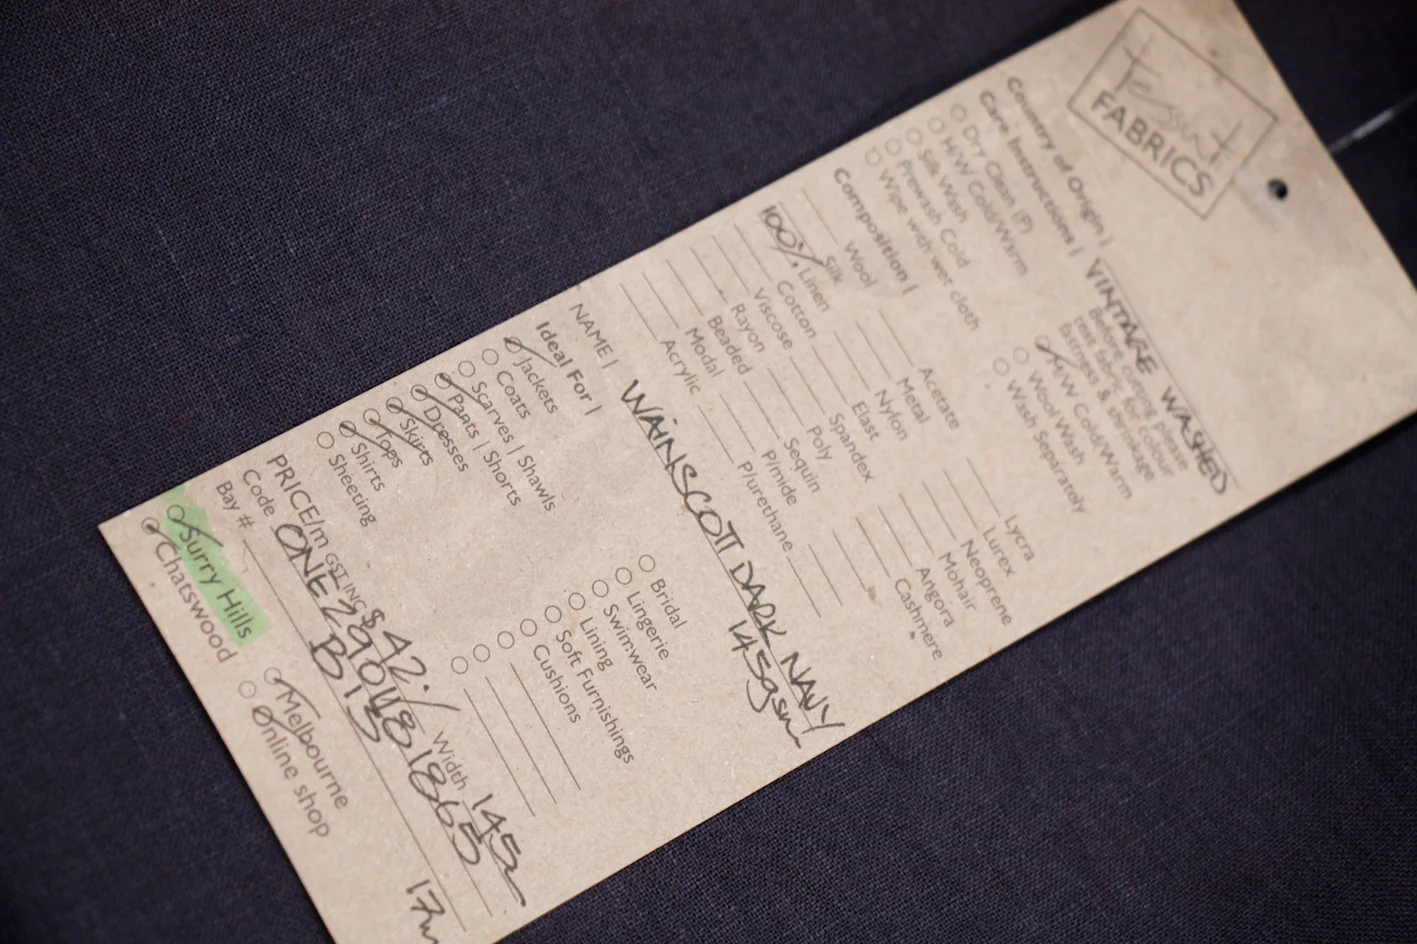 Tessuti
FABRICS
Country of Origin |
VINTAGE WASHED
Care Instructions |
Before cutting please
test fabric for colour
fastness & shrinkage
Dry Clean (P)
H/W Cold/Warm
Silk Wash
Prewash Cold
Wipe with wet cloth
M/W Cold/Warm
Wool Wash
Wash Separately
Composition |
Wool
Silk
100% Linen
Cotton
Viscose
Rayon
Beaded
Modal
Acrylic
Acetate
Metal
Nylon
Elast
Spandex
Poly
Sequin
P/mide
P/urethane
Lycra
Lurex
Neoprene
Mohair
Angora
Cashmere
NAME | WAINSCOTT DARK NAVY
145gsm
Ideal For |
Jackets
Coats
Scarves | Shawls
Pants | Shorts
Dresses
Skirts
Tops
Shirts
Sheeting
Bridal
Lingerie
Swimwear
Lining
Soft Furnishings
Cushions
PRICE/m GST INC $42./ Width 145
Code ONE2901181865
Bay # B13
17m
Surry Hills
Chatswood
Melbourne
Online shop